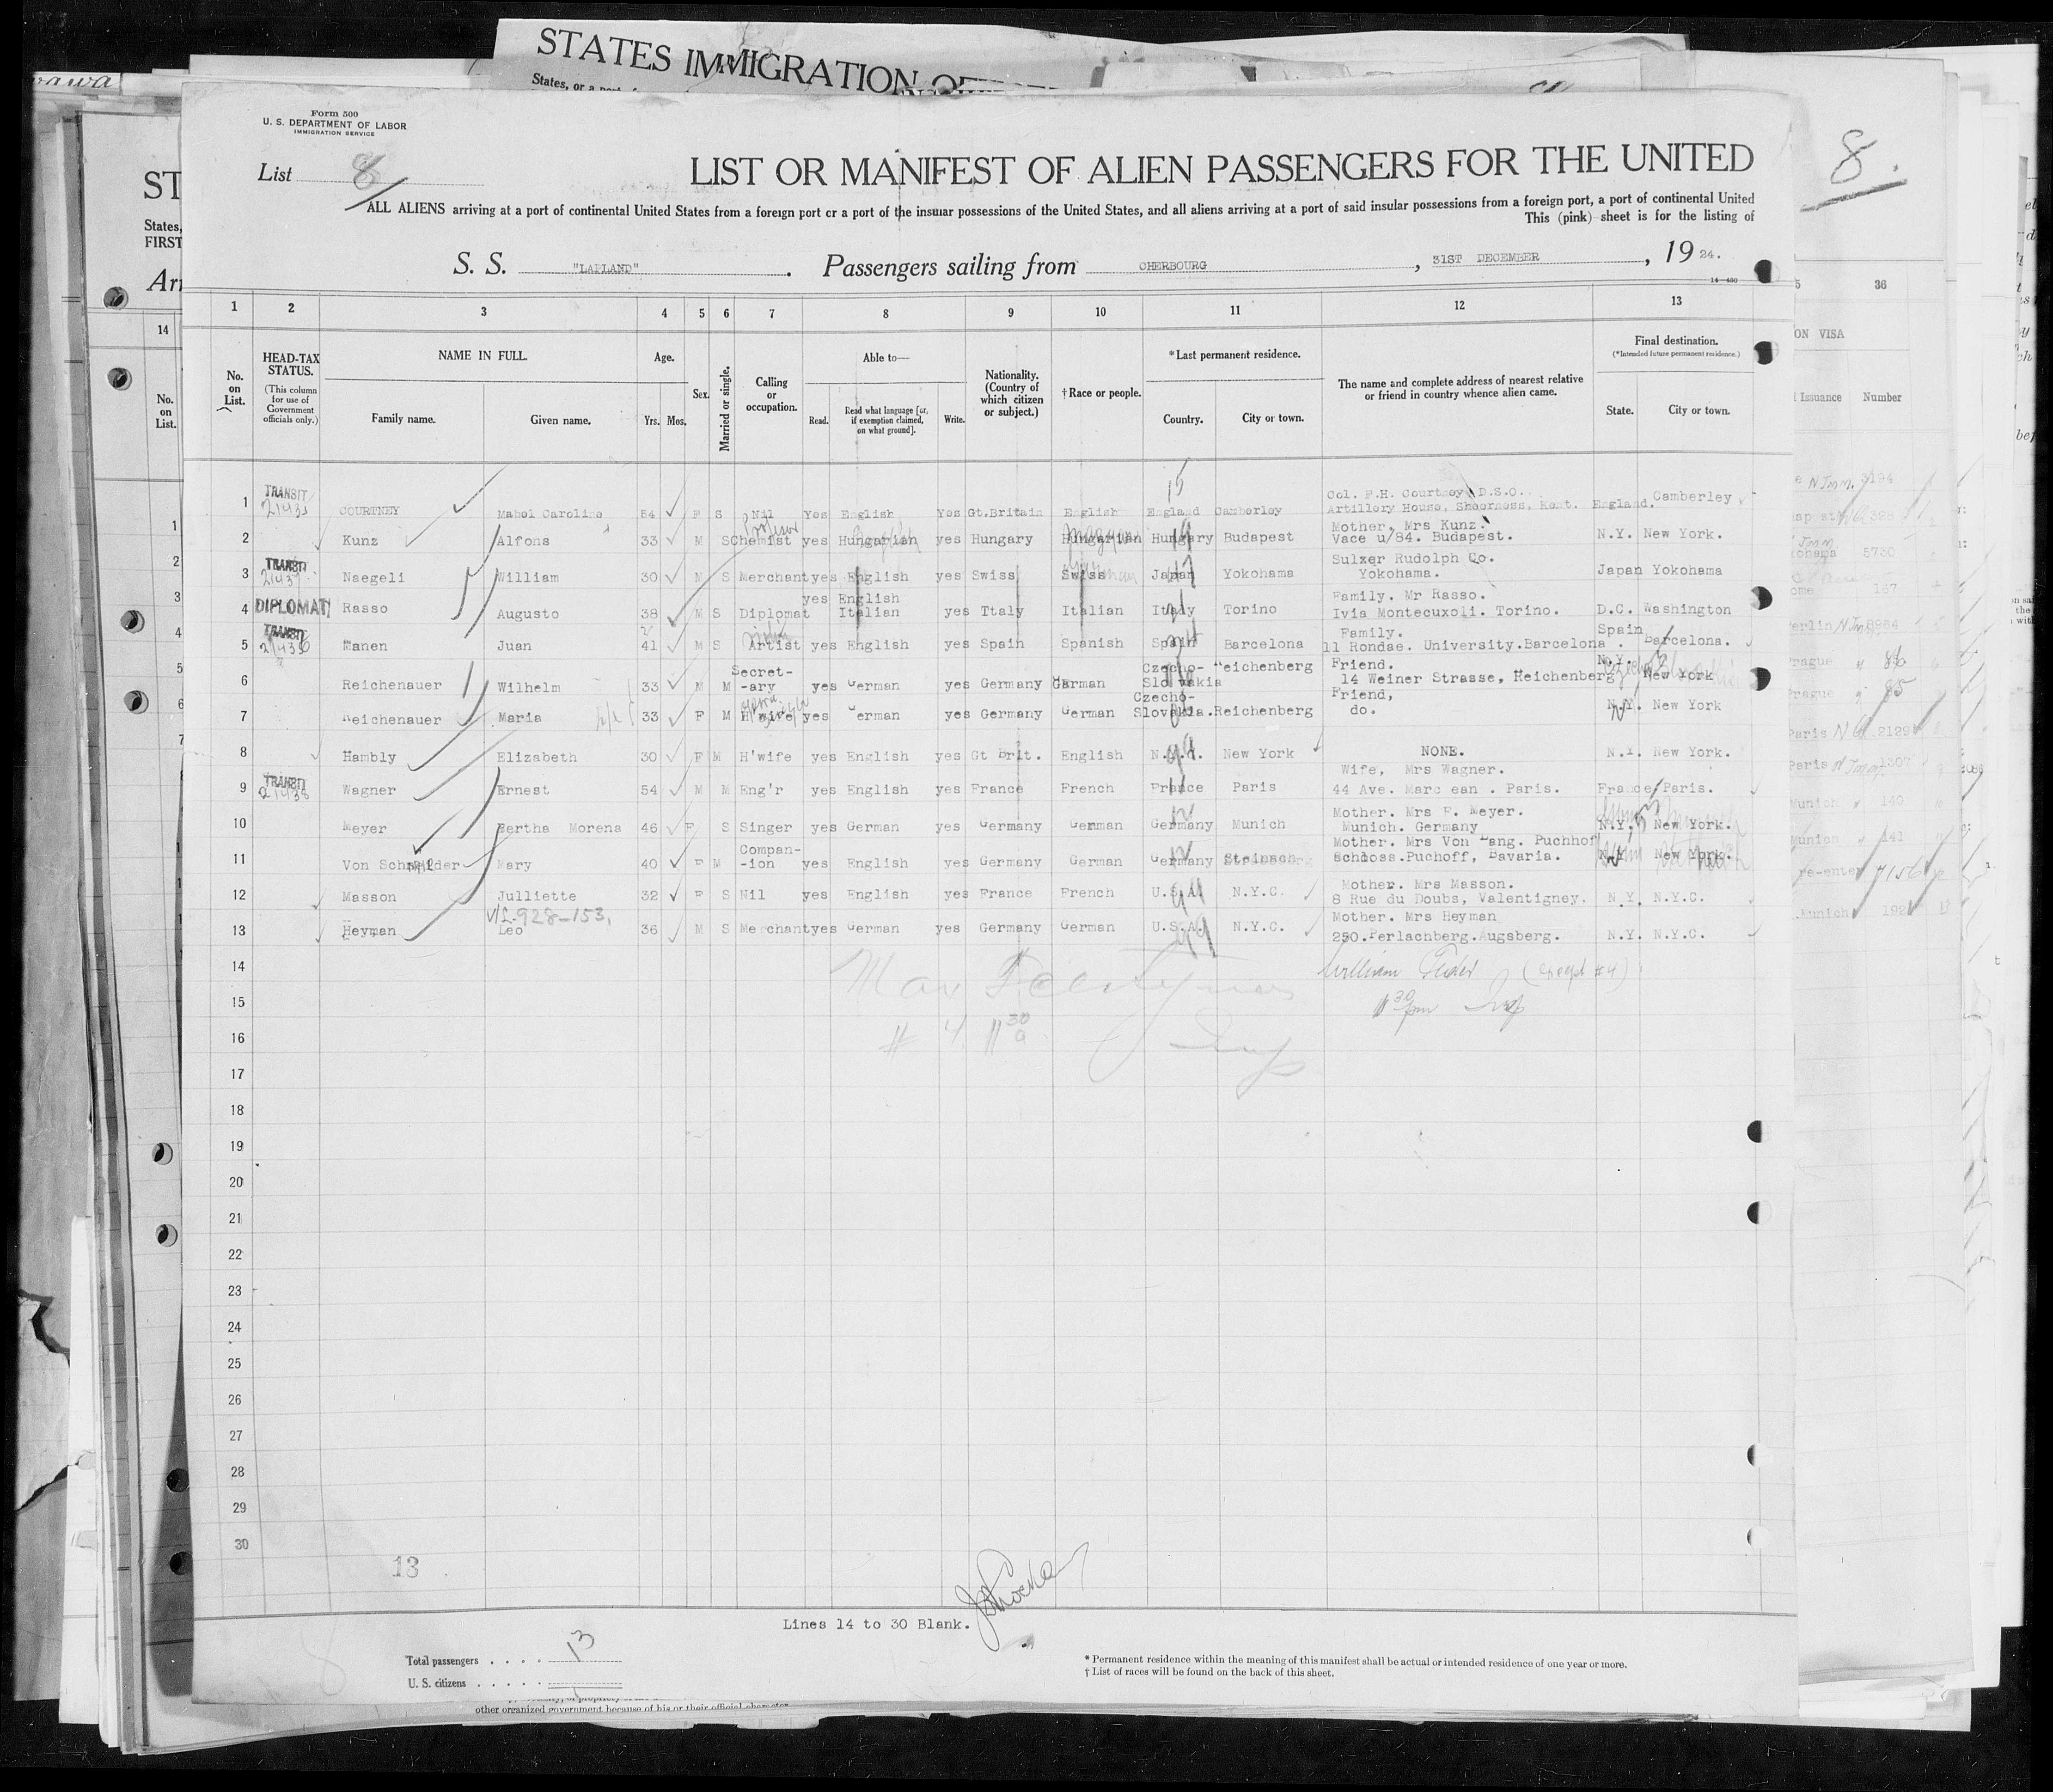 STATES IMMIGRATION
Form 500
U. S. DEPARTMENT OF LABOR
IMMIGRATION SERVICE
List 8
LIST OR MANIFEST OF ALIEN PASSENGERS FOR THE UNITED
8.
ALL ALIENS arriving at a port of continental United States from a foreign port or a port of the insular possessions of the United States, and all aliens arriving at a port of said insular possessions from a foreign port, a port of continental United
This (pink) sheet is for the listing of
S. S. "LAPLAND". Passengers sailing from CHERBOURG, 31ST DECEMBER, 19 24.
1 2 3 4 5 6 7 8 9 10 11 12 13
No. on List.
HEAD-TAX STATUS. (This column for use of Government officials only.)
NAME IN FULL. Family name. Given name.
Age. Yrs. Mos.
Sex.
Married or single.
Calling or occupation.
Able to— Read. Read what language [or, if exemption claimed, on what ground]. Write.
Nationality. (Country of which citizen or subject.)
† Race or people.
* Last permanent residence. Country. City or town.
The name and complete address of nearest relative or friend in country whence alien came.
Final destination. (* Intended future permanent residence.) State. City or town.
1 TRANSIT COURTNEY Mabel Caroline 54 F S Nil Yes English Yes Gt.Britain English England Camberley Col. F.H. Courtney D.S.O. Artillery House, Sheerness, Kent. England. Camberley
2 Kunz Alfons 33 M S Chemist yes Hungarian yes Hungary Hungarian Hungary Budapest Mother. Mrs Kunz. Vace u/84. Budapest. N.Y. New York.
3 TRANSIT Naegeli William 30 M S Merchant yes English yes Swiss Swiss Japan Yokohama Sulxer Rudolph Co. Yokohama. Japan Yokohama
4 DIPLOMAT Rasso Augusto 38 M S Diplomat yes English Italian yes Ttaly Italian Italy Torino Family. Mr Rasso. Ivia Montecuxoli. Torino. D.C. Washington
5 TRANSIT Manen Juan 41 M S Artist yes English yes Spain Spanish Spain Barcelona Family. 11 Rondae. University.Barcelona. Spain Barcelona.
6 Reichenauer Wilhelm 33 M M Secret-ary yes German yes Germany German Czecho-Slovakia Reichenberg Friend. 14 Weiner Strasse, Reichenberg N.Y. New York
7 Reichenauer Maria 33 F M H'wife yes German yes Germany German Czecho-Slovakia. Reichenberg Friend, do. N.Y. New York
8 Hambly Elizabeth 30 F M H'wife yes English yes Gt Brit. English New York NONE. N.Y. New York.
9 TRANSIT Wagner Ernest 54 M M Eng'r yes English yes France French France Paris Wife, Mrs Wagner. 44 Ave. Marc ean . Paris. France Paris.
10 Meyer Bertha Morena 46 F S Singer yes German yes Germany German Germany Munich Mother. Mrs F. Meyer. Munich. Germany N.Y. New York.
11 Von Schneider Mary 40 F M Compan-ion yes English yes Germany German Germany Steinach Mother. Mrs Von Lang. Puchhof Schloss.Puchoff, Bavaria. N.Y. New York.
12 Masson Julliette 32 F S Nil yes English yes France French U.S.A. N.Y.C. Mother. Mrs Masson. 8 Rue du Doubs, Valentigney. N.Y. N.Y.C.
V/L-928-153,
13 Heyman Leo 36 M S Merchant yes German yes Germany German U.S.A. N.Y.C. Mother. Mrs Heyman 250.Perlachberg.Augsberg. N.Y. N.Y.C.
14
15
16
17
18
19
20
21
22
23
24
25
26
27
28
29
30
13
Lines 14 to 30 Blank.
Total passengers . . . . 13
U. S. citizens . . . . .
* Permanent residence within the meaning of this manifest shall be actual or intended residence of one year or more.
† List of races will be found on the back of this sheet.
other organized government because of his or their official character